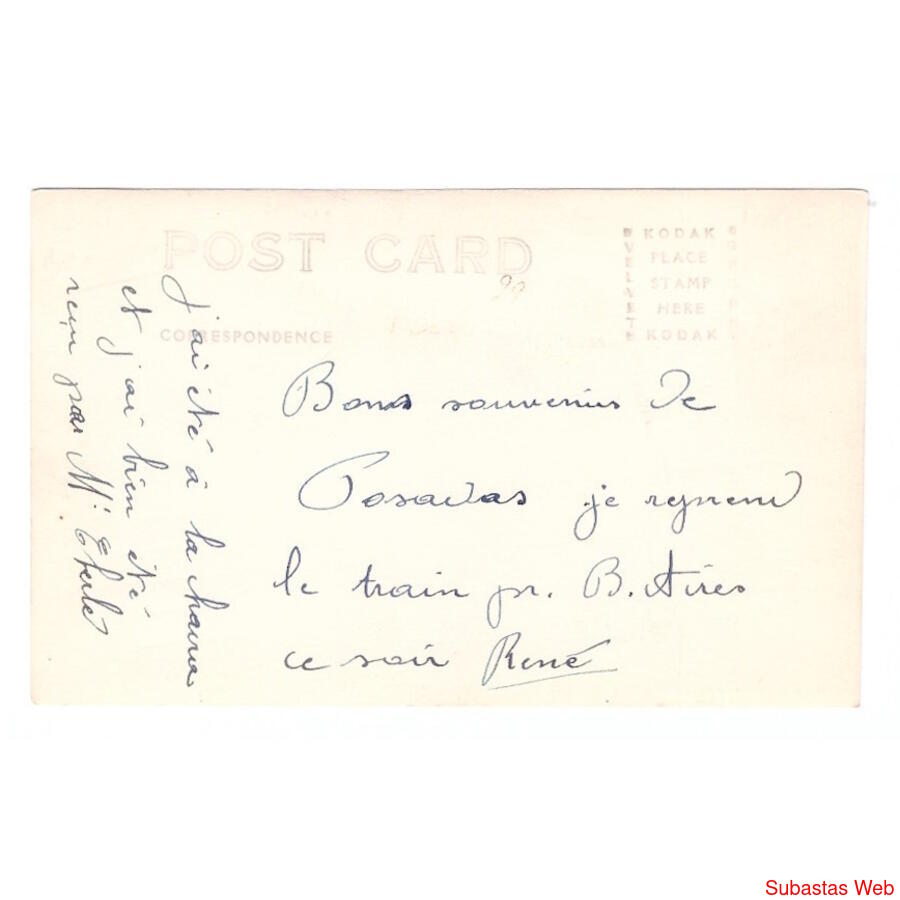 POST CARD
CORRESPONDENCE
KODAK
PLACE
STAMP
HERE
KODAK
VELVET
99
Bons souvenirs de
Posadas je reprend
le train pr. B. Aires
ce soir René
j'ai été à la
et j'ai bien été
reçu par Mr
Subastas Web